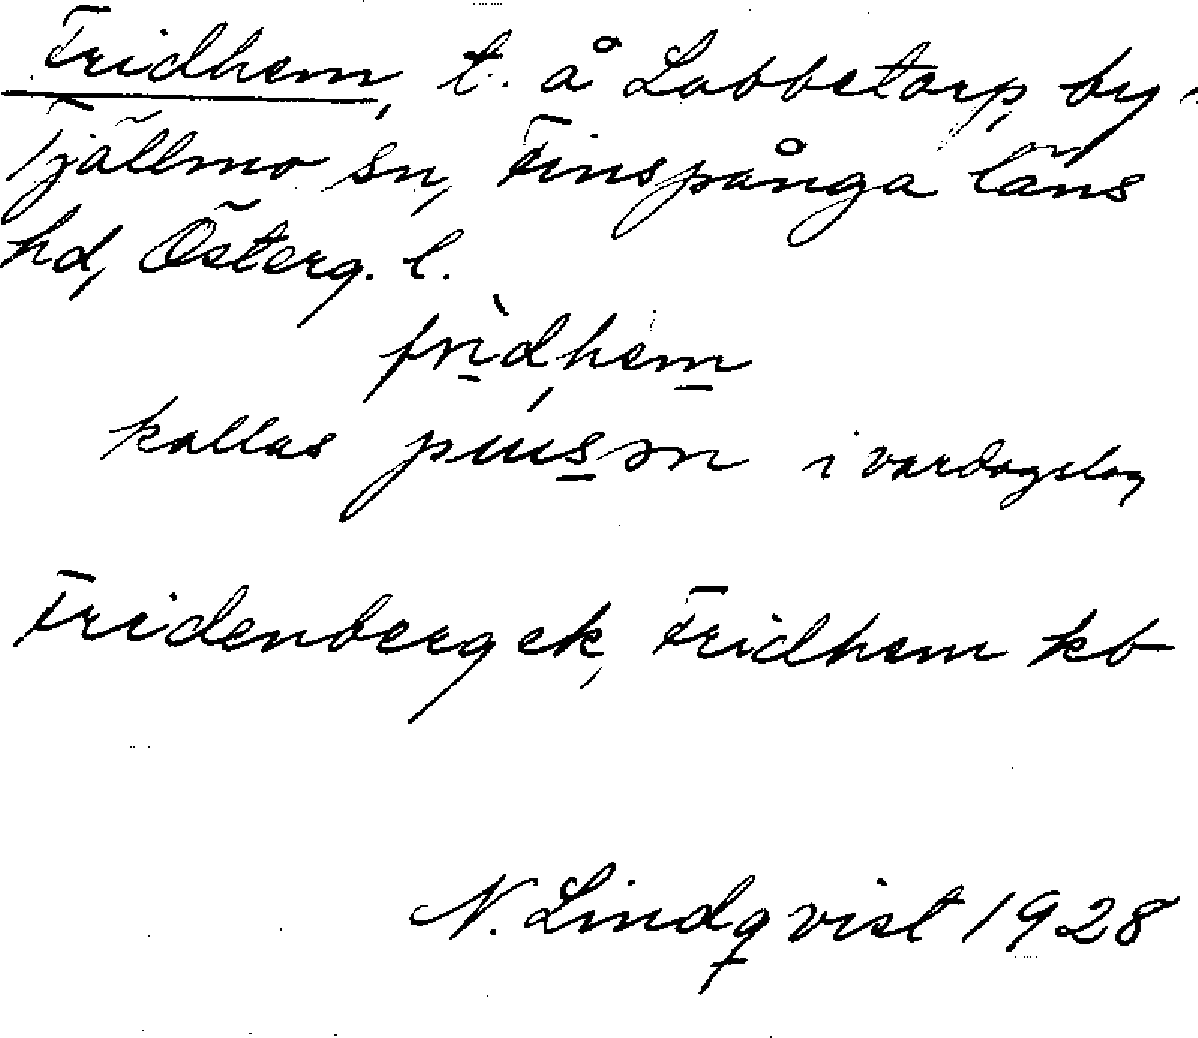 Fridhem, t. å Labbetorp, by
Tjällmo sn, Finspånga läns
hd, Österg. l.
frìdhem
kallas i vardagslag
Fridenberg ek, Fridhem kb
N. Lindqvist 1928